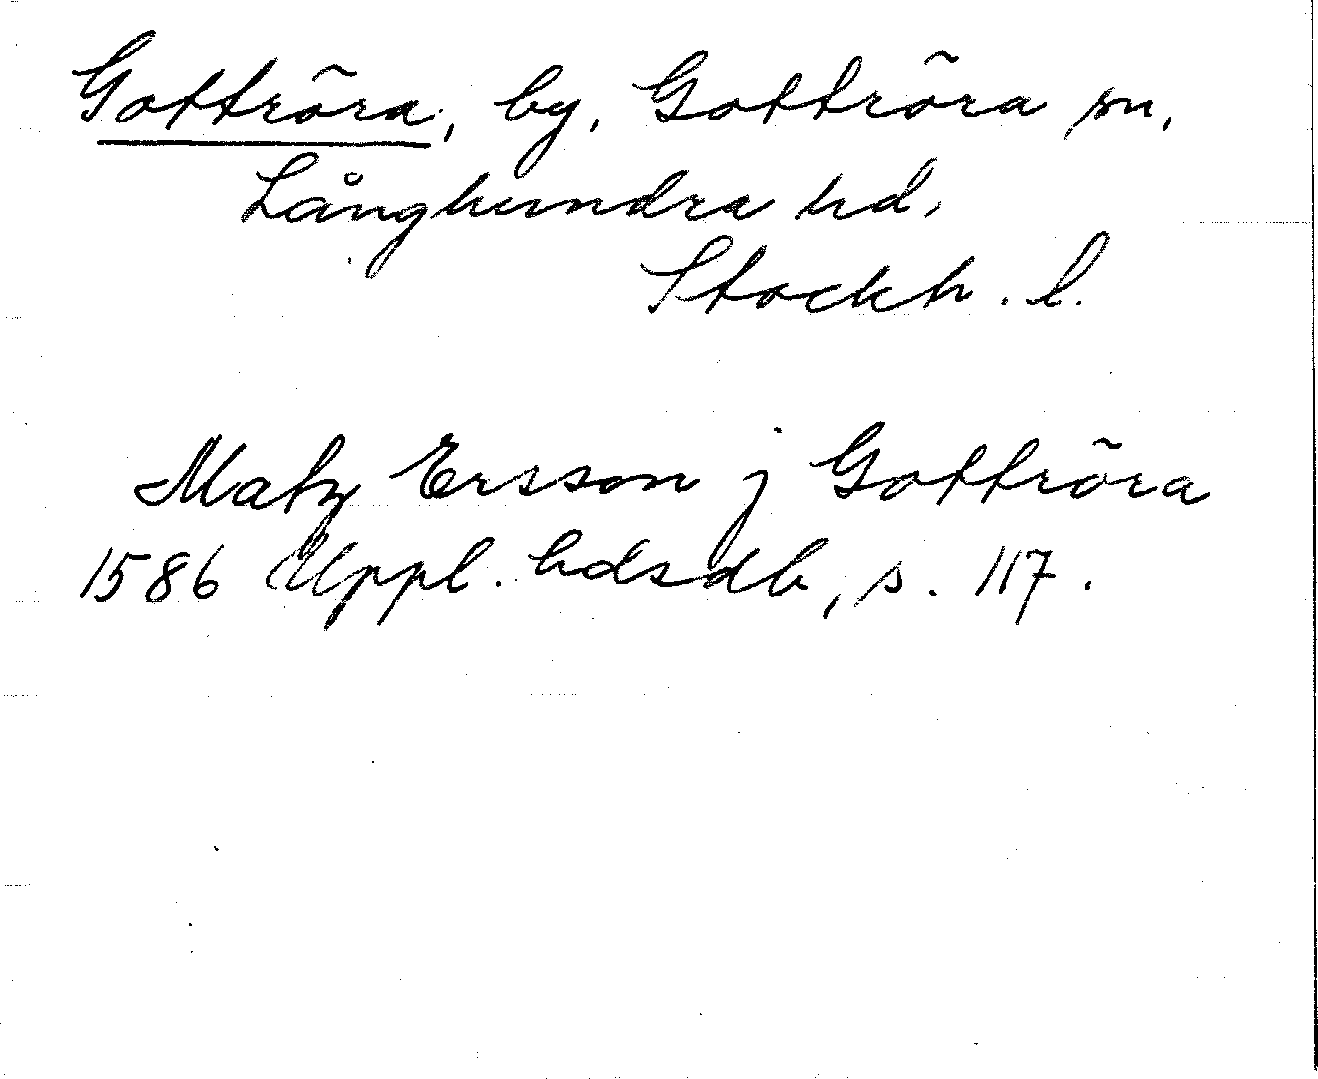 Gottröra, by, Gottröra sn,
Långhundra hd,
Stockh. l.
Matz Ersson j Gottröra
1586 Uppl. hdsdb, s. 117.